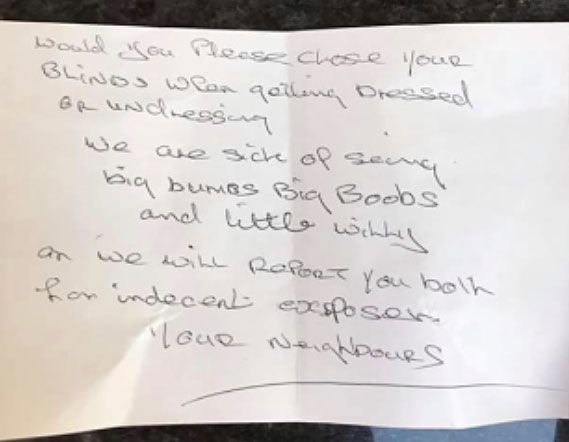 Would you Please close your
BLINDS when getting Dressed
OR undressing
we are sick of seing
big bumbs Big Boobs
and little willy
or we will REPORT you both
for indecent exsposer.
YOUR NEIGHBOURS